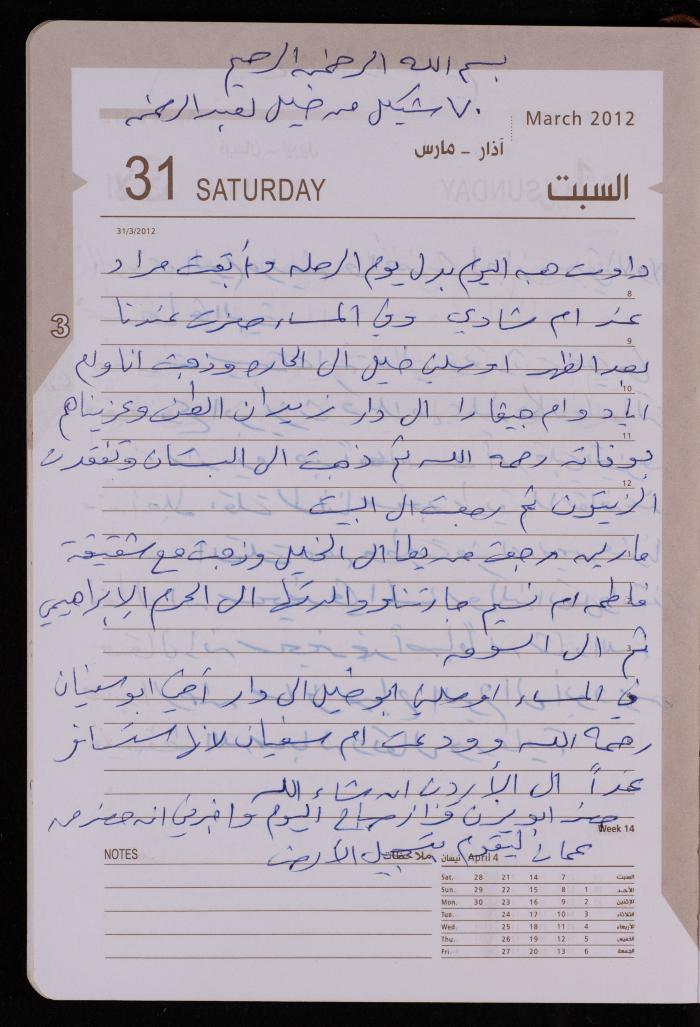 بسم الله الرحمن الرحيم
٧٠ شيكل من خليل لعبد الرحمن
March 2012
آذار - مارس
31 SATURDAY
السبت
31/3/2012
داومت هبه اليوم بدل يوم الرحله و بقيت مراد
8
عند ام شادي وفي المساء حضرت عندنا
9
بعد الظهر اوصلني خليل ال الحاره وذهبت انا وام
10
اياد وام جيفارا ال دار زيدان الطن وعزيناهم
11
بوفاته رحمه الله ثم ذهبت ال البستان وتفقدت
12
الزيتون ثم رجعت ال البيت
مارلين رجعت من يطا ال الخليل وذهبت مع شقيقة
فاطمه ام نسيم جارتنا ووالدتها ال الحرم الإبراهيمي
ثم ال السوق
3
في المساء اوصلني ابو خليل الى دار أخي ابو سفيان
رحمه الله وودعت ام سفيان لانها ستسافر
غداً ال الأردن ان شاء الله
حضر ابو يزن فواز صباح اليوم واخبرني انه حضر من
Week 14
عمان ليقوم بتسجيل الأرض
NOTES
ملاحظات
نيسان April 4
Sat. 28 21 14 7 السبت
Sun. 29 22 15 8 1 الأحد
Mon. 30 23 16 9 2 الإثنين
Tue. 24 17 10 3 الثلاثاء
Wed. 25 18 11 4 الأربعاء
Thu. 26 19 12 5 الخميس
Fri. 27 20 13 6 الجمعة